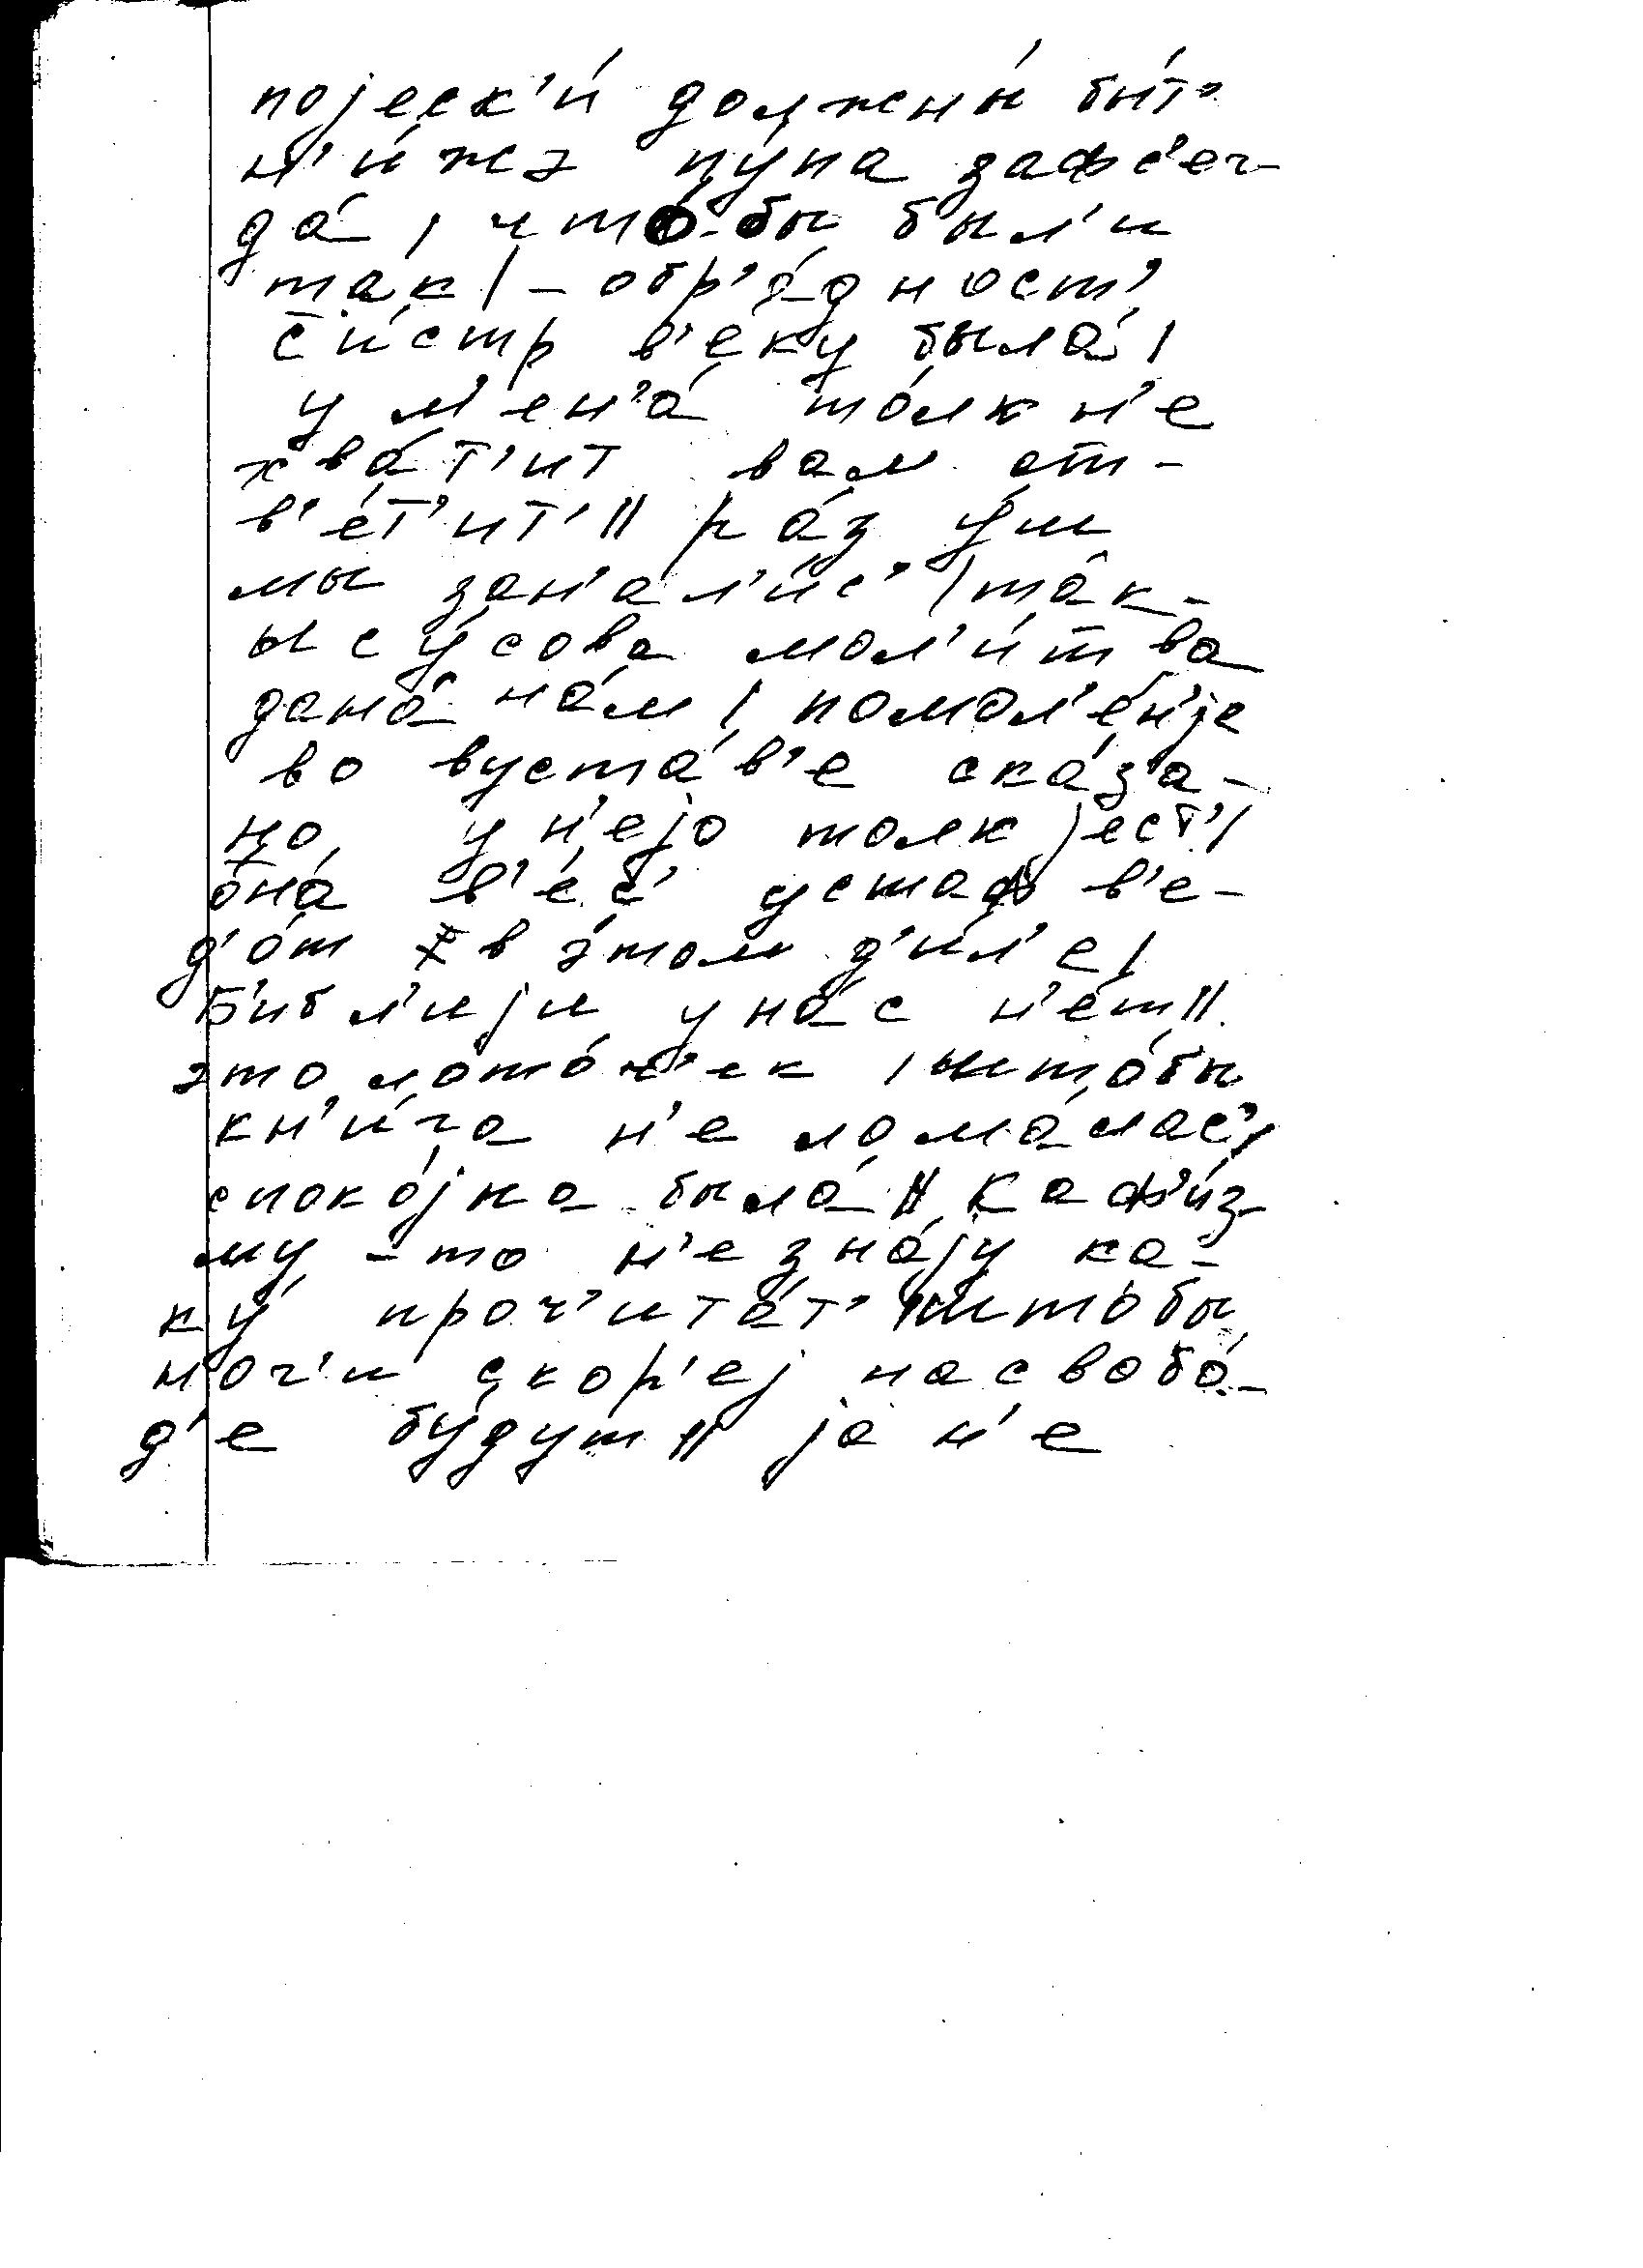 појеск'и́ должны́ быт'
н'и́жэ пу́па зафс'ег-
да́ / што́-бы был'и
так / – обр'а́дност'
с'и́стр в'е́ку была́ /
у м'ен'а́ то́лк н'е
хва́т'ит вам от-
в'е́т'ит' // ра́з у́ш
мы зан'ал'и́с' / та́к-
ысу́сова мол'и́тва
дана́ на́м / помол'е́н'је
во вуста́в'е ска́за-
но, у н'ејо толк јест' /
она́ в'е́с' устаф в'е-
д'о́т в э́том д'и́л'е /
Б'ибл'ији у на́с н'е́т //
это лото́ч'ек / што́бы
кн'и́га н'е лома́лас' /
споко́јна была́ // каф'и́з-
му -то н'е зна́ју ка-
ку́ проч'ита́т' / што́бы
ног'и скор'еј на свобо́-
д'е бу́дут // ја н'е